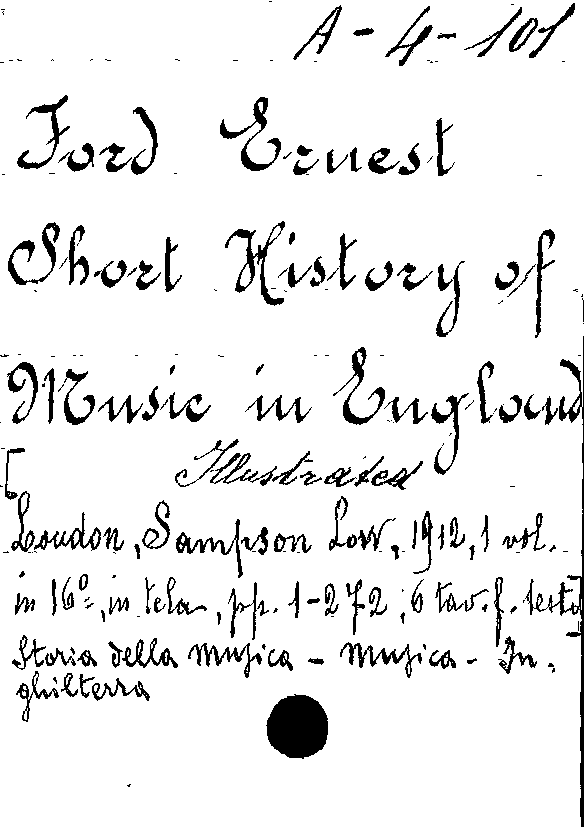 A-4-101
Ford Ernest
Short History of
Music in England
Illustrated
[London, Sampson Low, 1912, 1 vol.
in 16º, in tela, pp. 1-272; 6 tav. f. testo]
Storia della Musica - Musica - In-
ghilterra